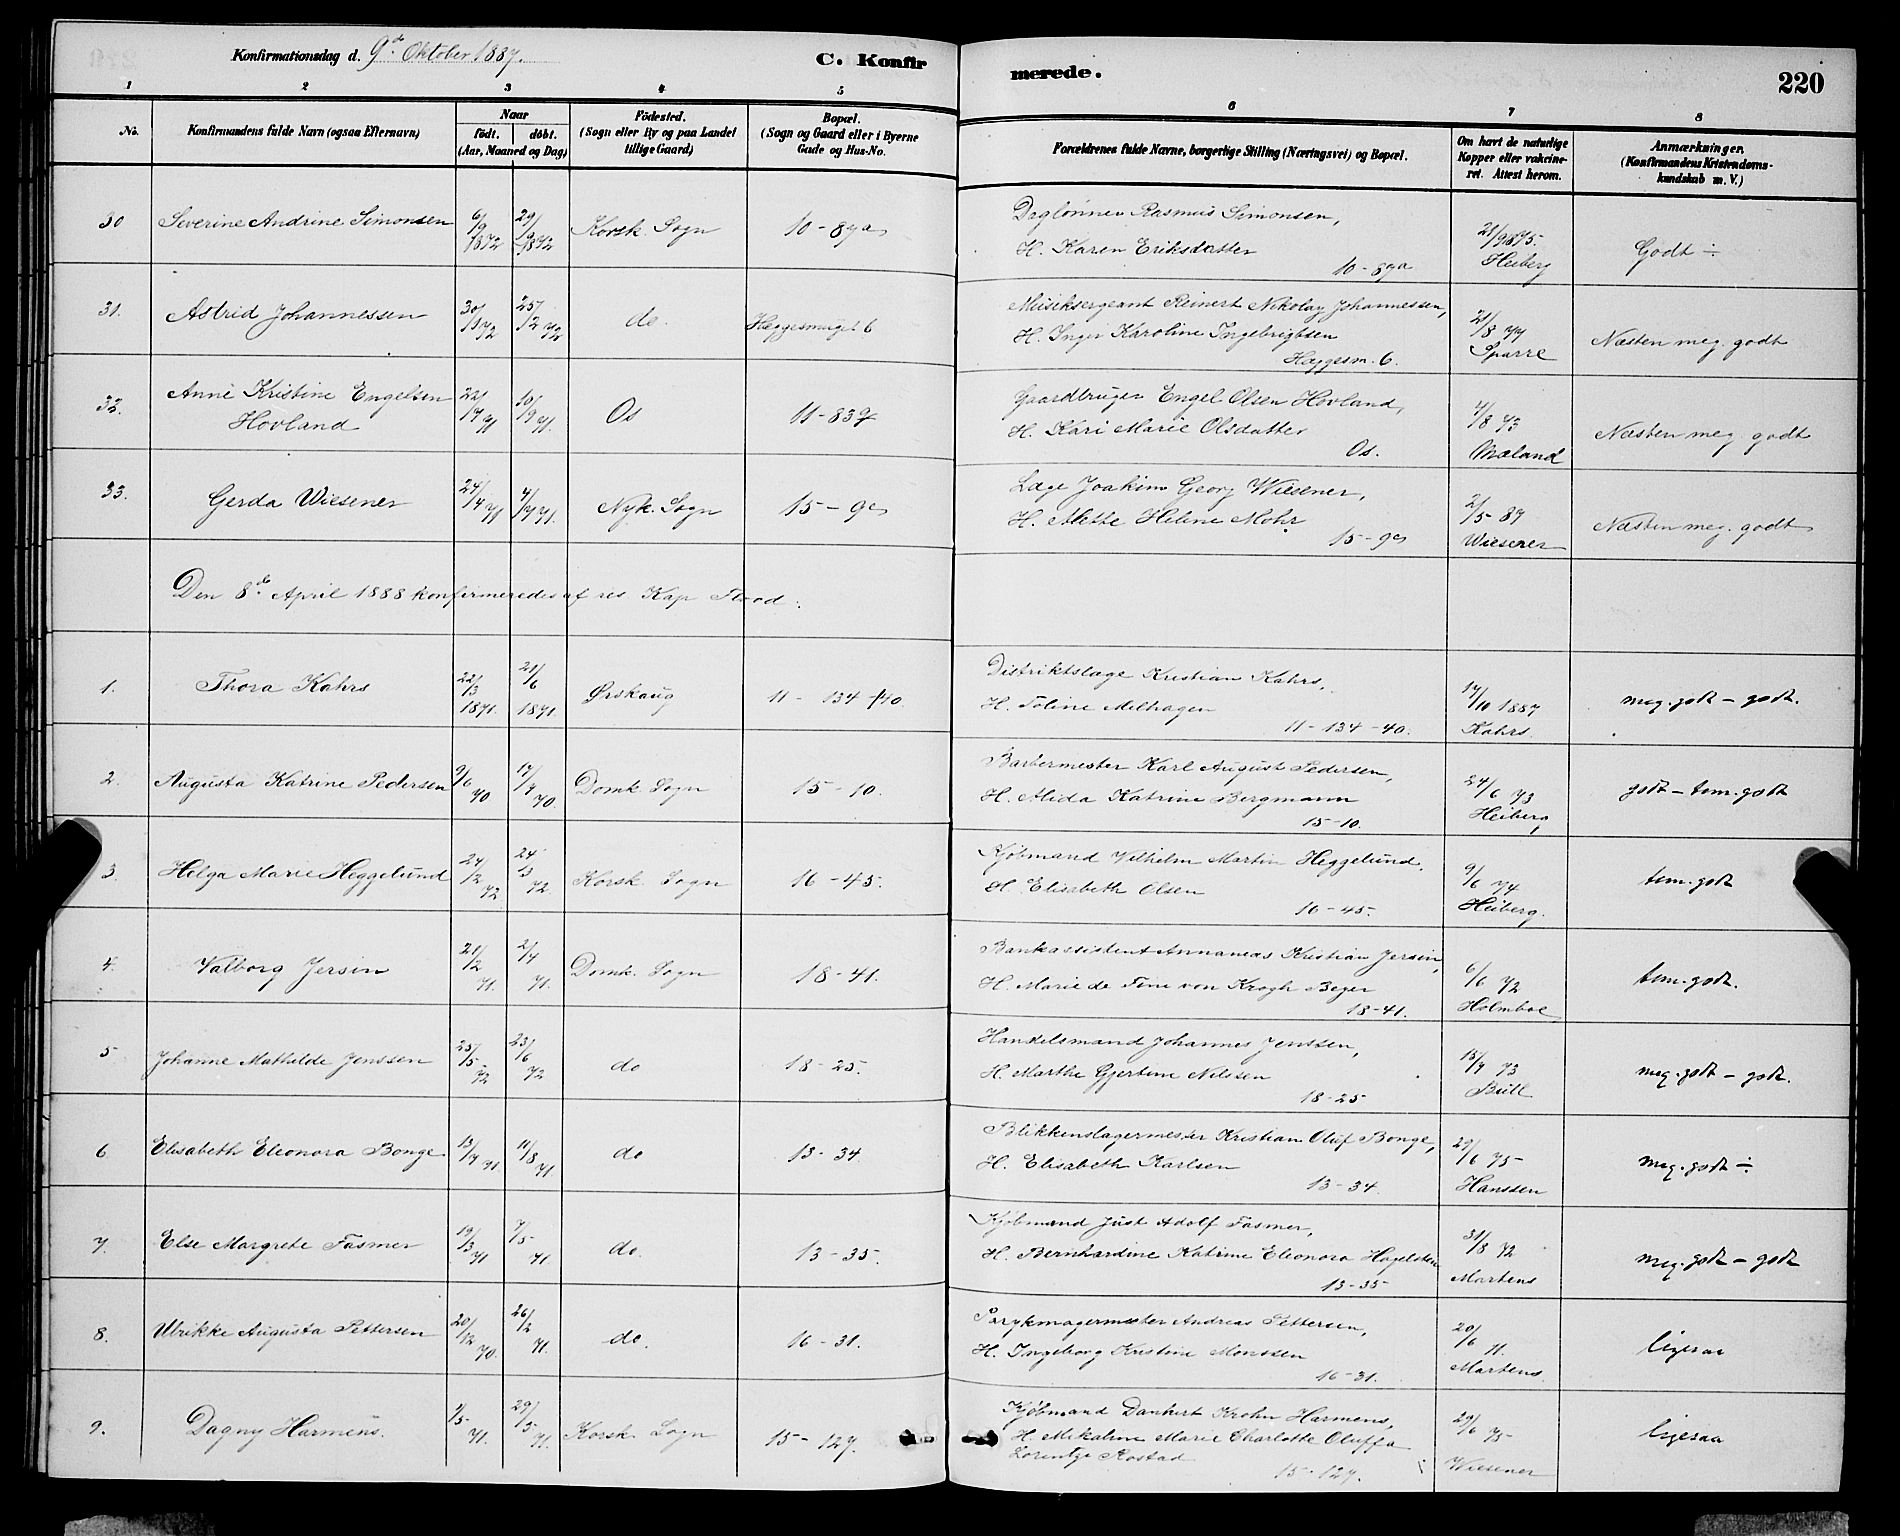 Konfirmationsdag d. 9de Oktober 1887.
C. Konfirmerede.
220
1 2 3 4 5 6 7 8
No.
Konfirmandens fulde Navn (ogsaa Efternavn)
Naar
födt. döbt.
(Aar, Maaned og Dag)
Födested.
(Sogn eller By og paa Landet
tillige Gaard)
Bopæl.
(Sogn og Gaard eller i Byerne
Gade og Hus-No.
Forældrenes fulde Navne, borgerlige Stilling (Næringsvei) og Bopæl.
Om havt de naturlige
Kopper eller vakcine-
ret. Attest herom.
Anmærkninger.
(Konfirmandens Kristendoms-
kundskab m. V.)
30 Severine Andrine Simonsen 6/9 1872 29/9 1872 Korsk. Sogn 10-89a
Daglönner Rasmus Simonsen,
H. Karen Eriksdatter
10-89a
21/9 1875. Heiberg
Godt ÷
31. Astrid Johannessen 30/1 72 25/2 72 do. Heggesmuget 6
Musiksergeant Reinert Nikolay Johannessen,
H. Inger Karoline Ingebrigtsen
Heggesm. 6.
21/8 74 Sparre
Næsten meg. godt
32. Anne Kristine Engelsen
Hovland 22/7 71 10/9 71. Os 11-83
Gaardbruger Engel Olsen Hovland,
H. Kari Marie Olsdatter
Os.
4/8 73 Mæland
Næsten meg. godt
33. Gerda Wiesener 24/4 71 4/7 71. Nyk. Sogn 15-9c
Læge Joakim Georg Wiesener,
H. Alette Helene Mohr
15-9c
2/5-87 Wiesener
Næsten meg. godt
Den 8de April 1888 konfirmeredes af res Kap Flood:
1. Thora Kahrs 22/3 1871. 21/6 1871. Ørskaug 11-134-40.
Distriktslæge Kristian Kahrs,
H. Toline Aelhagen
11-134-40.
17/10 1887 Kahrs
meg. godt - godt.
2. Augusta Katrine Pedersen 9/6 70 17/7 70 Domk. Sogn 15-10.
Barbermester Karl August Pedersen,
H. Alida Katrine Bergmann
15-10.
24/6 73 Heiberg
godt - tem. godt
3. Helga Marie Heggelund 24/2 72 24/3 72. Korsk. Sogn 16-45.
Kjöbmand Vilhelm Martin Heggelund,
H. Elisabeth Olsen
16-45.
9/6 74 Heiberg.
tem. godt
4. Valborg Jersin 21/2 71. 2/4 71. Domk. Sogn 18-41.
Bankassistent Annanias Kristian Jersin,
H. Marie de Fine von Krogh Beyer
18-41.
6/6 72 Holmboe
tem. godt.
5 Johanne Mathilde Jenssen 25/5-72 23/6 72 do 18-25.
Handelsmand Johannes Jenssen,
H. Marthe Gjertine Nilssen
18-25
15/7 73 Bull
meg. godt - godt.
6 Elisabeth Eleonora Bonge 13/7 71 11/8 71 do 13-34.
Blikkenslagermester Kristian Oluf Bonge,
H. Elisabeth Karlsen
13-34.
29/6 75- Hanssen
meg. godt ÷
7. Else Margrete Fasmer 19/3 71 7/5-71. do. 13-35.
Kjöbmand Just Adolf Fasmer,
H. Bernhardine Katrine Eleonora Hagelsteen
13-35
31/8 72 Martens
meg. godt - godt
8. Ulrikke Augusta Pettersen 20/12 70. 26/2 71. do. 16-31.
Parykmagermester Andreas Pettersen,
H. Ingeborg Kristine Monssen
16-31.
20/6 71. Martens
ligesaa
9. Dagny Harmens. 1/5-71. 29/5-71. Korsk. Sogn 15-127.
Kjöbmand Dankert Krohn Harmens,
H. Mikaline Marie Charlotte Oluffa
Lorentze Rostad
15-127.
29/6 75- Wiesener
ligesaa